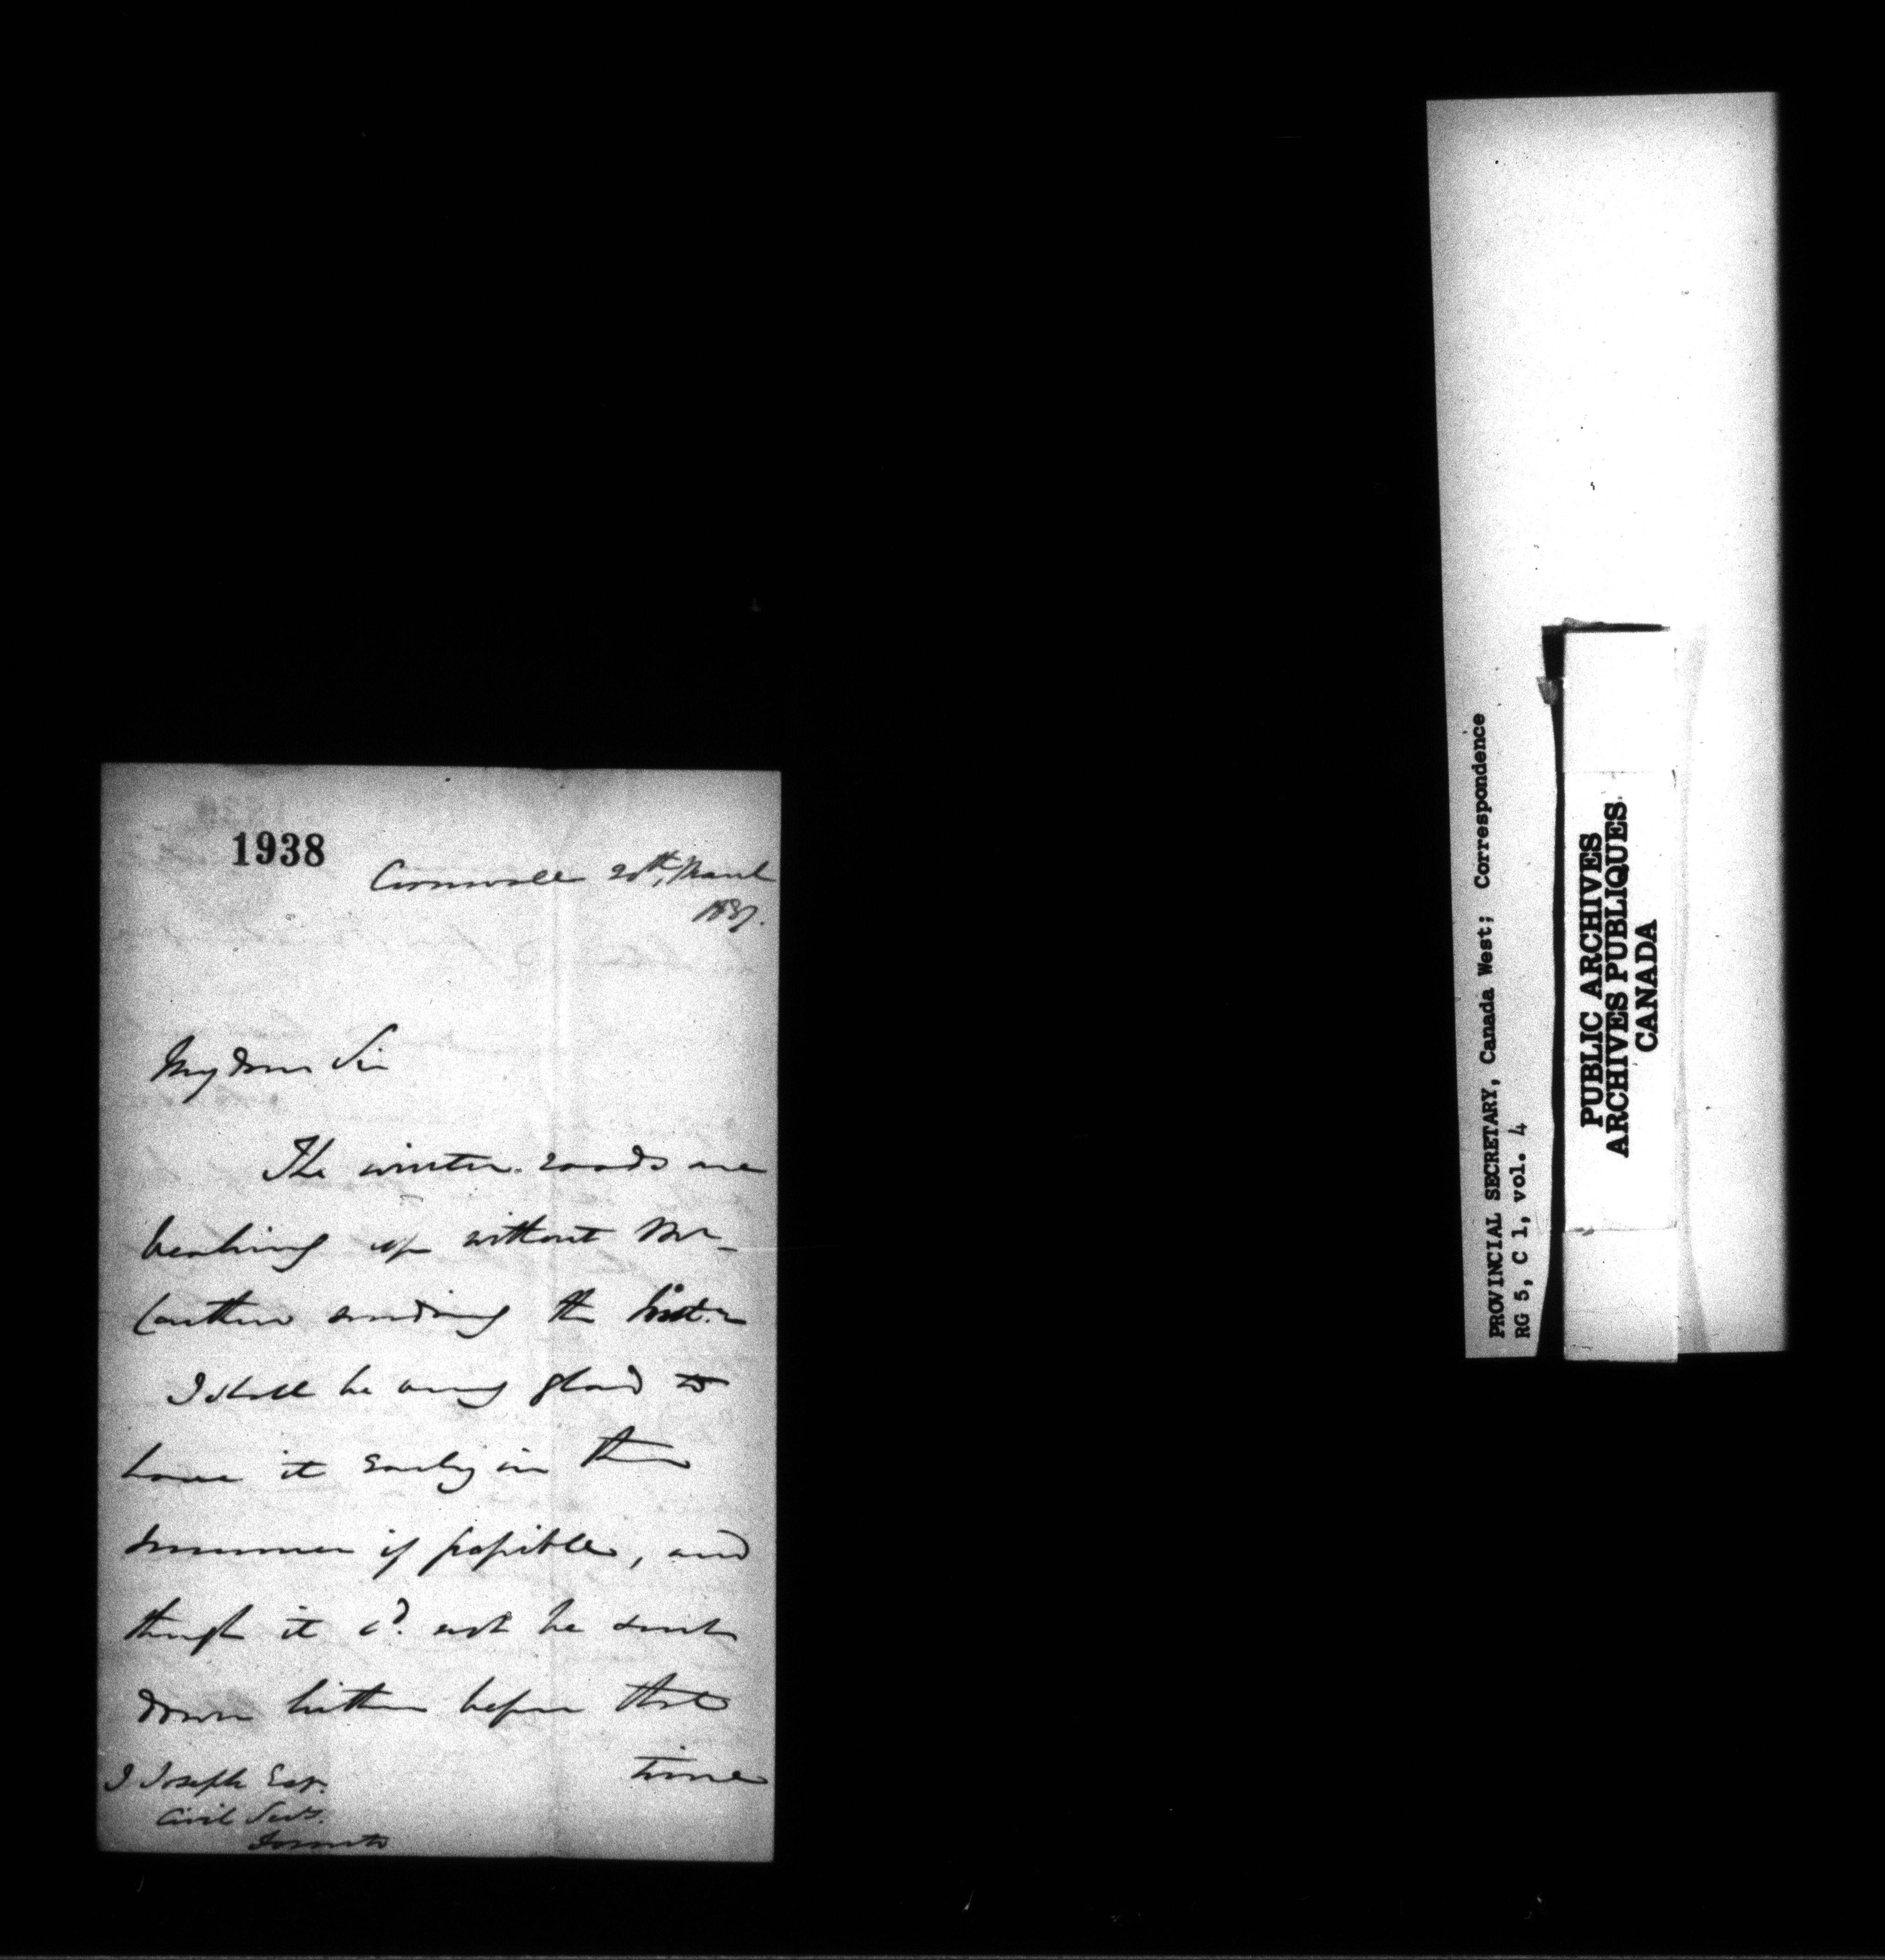 1938
Cornwall 20th March
1837.
My dear Sir
The winter roads are
breaking up without Mr
Cawthra sending the
I shall be very glad to
have it early in the
summer if possible, and
though it cd. not be sent
down hither before that
time
J Joseph Esqr.
Civil Secy.
Toronto
PROVINCIAL SECRETARY, Canada West; Correspondence
RG 5, C 1, vol. 4
PUBLIC ARCHIVES
ARCHIVES PUBLIQUES
CANADA